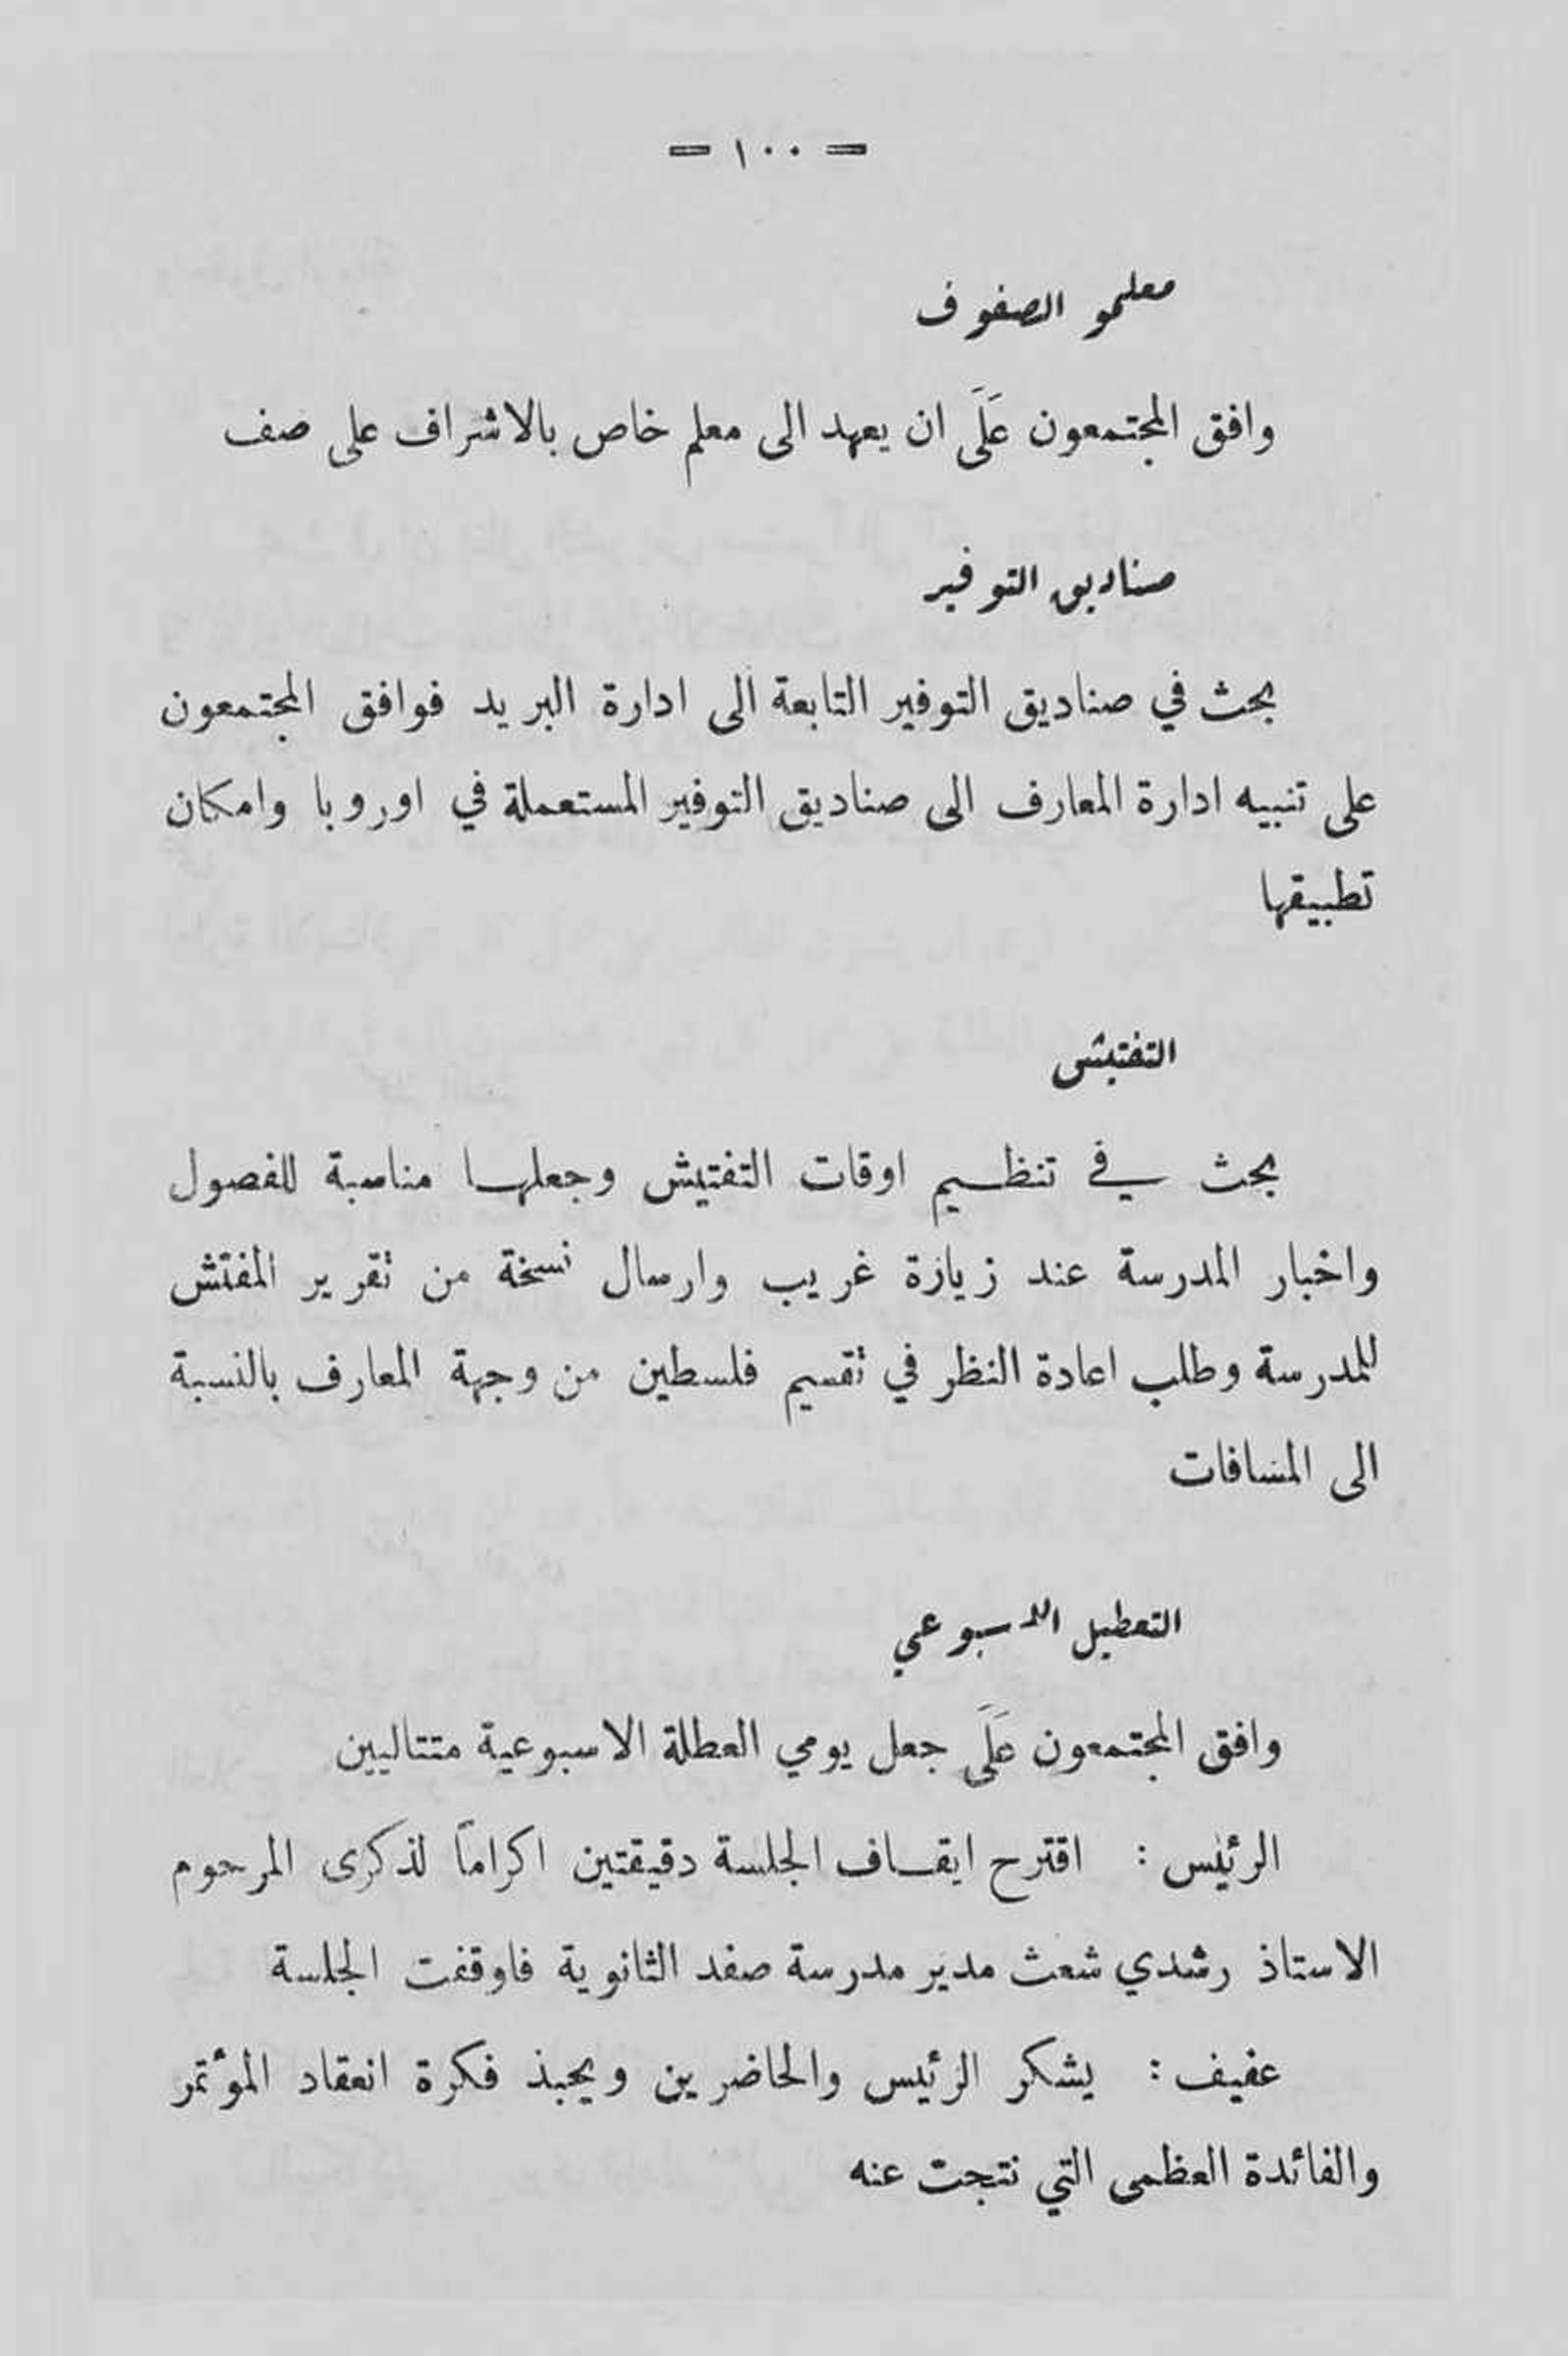 = ١٠٠ =
معلمو الصفوف
وافق المجتمعون عَلَى ان يعهد الى معلم خاص بالاشراف على صف
صناديق التوفير
بحث في صناديق التوفير التابعة الى ادارة البريد فوافق المجتمعون
على تنبيه ادارة المعارف الى صناديق التوفير المستعملة في اوروبا وامكان
تطبيقها
التفتيش
بحث في تنظيم اوقات التفتيش وجعلها مناسبة للفصول
واخبار المدرسة عند زيازة غريب وارسال نسخة من تقرير المفتش
للمدرسة وطلب اعادة النظر في تقسيم فلسطين من وجهة المعارف بالنسبة
الى المسافات
التعطيل الاسبوعي
وافق المجتمعون عَلَى جعل يومي العطلة الاسبوعية متتاليين
الرئيس : اقترح ايقاف الجلسة دقيقتين اكراماً لذكرى المرحوم
الاستاذ رشدي شعث مدير مدرسة صفد الثانوية فاوقفت الجلسة
عفيف : يشكر الرئيس والحاضرين ويحبذ فكرة انعقاد المؤتمر
والفائدة العظمى التي نتجت عنه